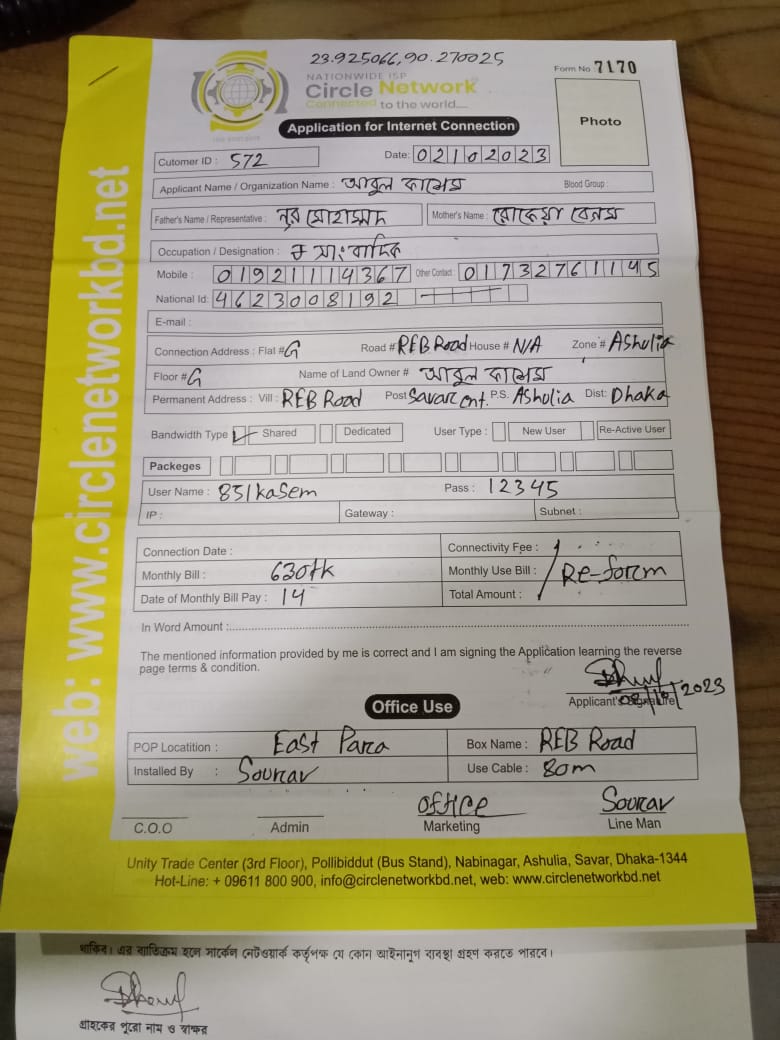 23.925066,90.270025
Form No 7170
NATIONWIDE ISP
Circle Network
Connected to the world....
Photo
Application for Internet Connection
Cutomer ID : 572 Date: 02102023
Applicant Name / Organization Name : আবুল কাসেম Blood Group :
Father's Name / Representative : নুর মোহাম্মদ Mother's Name : রোকেয়া বেগম
Occupation / Designation : সাংবাদিক
Mobile : 01921114367 Other Contact : 01732761145
National Id: 4623008192
E-mail :
Connection Address : Flat # G Road # REB Road House # N/A Zone # Ashulia
Floor # G Name of Land Owner # আবুল কাসেম
Permanent Address : Vill : REB Road Post Savar Cnt. P.S. Ashulia Dist: Dhaka
Bandwidth Type Shared Dedicated User Type : New User Re-Active User
Packeges
User Name : 851kasem Pass : 12345
IP : Gateway : Subnet :
Connection Date : Connectivity Fee :
Monthly Bill : 630tk Monthly Use Bill : Re-form
Date of Monthly Bill Pay : 14 Total Amount :
In Word Amount :
The mentioned information provided by me is correct and I am signing the Application learning the reverse
page terms & condition.
Applicant's Signature
Office Use
POP Locatition : East Para Box Name : REB Road
Installed By : Sourav Use Cable : 80m
Office Sourav
C.O.O Admin Marketing Line Man
Unity Trade Center (3rd Floor), Pollibiddut (Bus Stand), Nabinagar, Ashulia, Savar, Dhaka-1344
Hot-Line: + 09611 800 900, info@circlenetworkbd.net, web: www.circlenetworkbd.net
web: www.circlenetworkbd.net
থাকিব। এর ব্যতিক্রম হলে সার্কেল নেটওয়ার্ক কর্তৃপক্ষ যে কোন আইনানুগ ব্যবস্থা গ্রহণ করতে পারবে।
গ্রাহকের পুরো নাম ও স্বাক্ষর